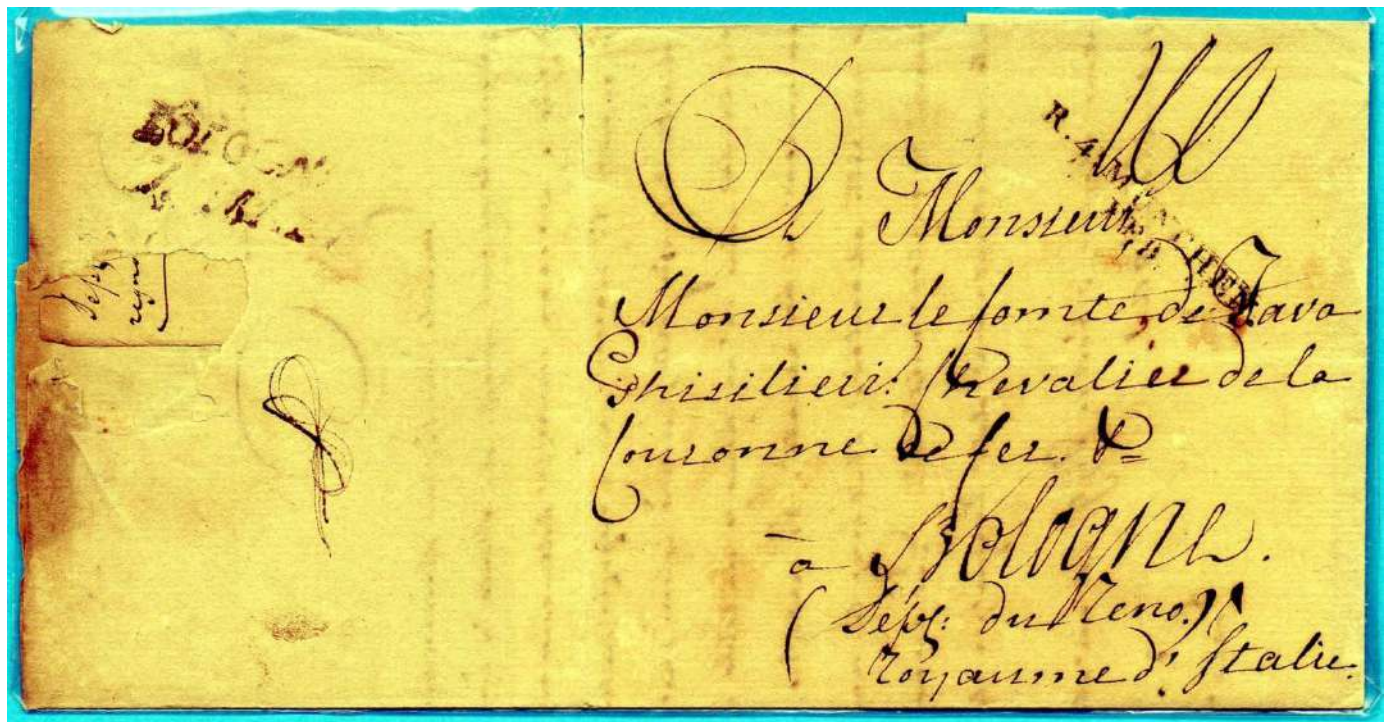 BOLOGN
R. 4. MÜNCHEN
A Monsieur
Monsieur le Comte de Sava
Ghisilieri. Chevalier de la
Couronne de fer. &=
à Bologne.
(Dept: du Reno.)
Royaume d'Italie.